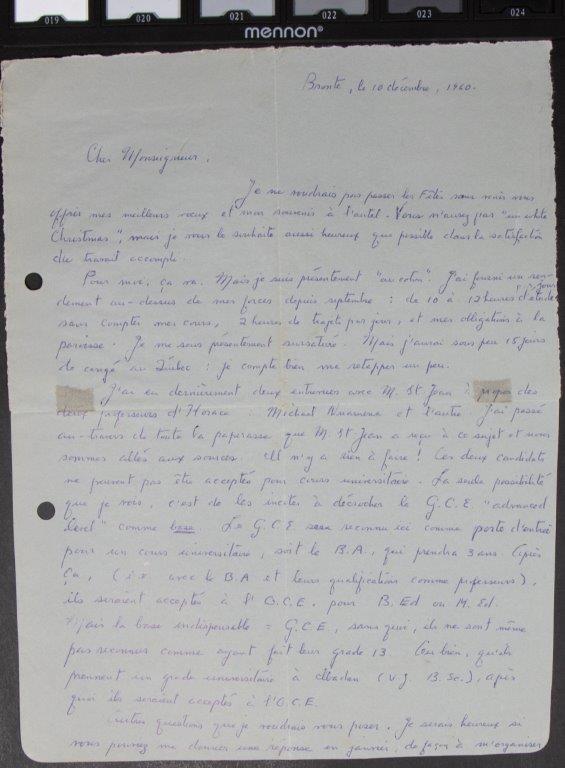 019 020 021 022 023 024
mennon®
Bronte, le 10 décembre, 1960.
Cher Monseigneur,
Je ne voudrais pas passer les Fêtes sans venir vous
offrir mes meilleurs vœux et mon souvenir à l'autel. Vous n'aurez pas "un white
Christmas", mais je vous le souhaite aussi heureux que possible dans la satisfaction
du travail accompli.
Pour moi, ça va. Mais je suis présentement "au coton". J'ai fourni un ren-
dement au-dessus de mes forces depuis septembre : de 10 à 12 heures d'étude
par jour
sans compter mes cours, 2 heures de trajet par jour, et mes obligations à la
paroisse. Je me sens présentement sursaturé. Mais j'aurai sous peu 15 jours
de congé au Québec : je compte bien me retapper un peu.
J'ai eu dernièrement deux entrevues avec M. St Jean à propos des
deux professeurs d'Horace Michael et l'autre. J'ai passé
au-travers de toute la paperasse que M. St Jean a reçu à ce sujet et nous
sommes allés aux sources. Il n'y a rien à faire! Ces deux candidats
ne peuvent pas être acceptés pour cours universitaire. La seule possibilité
que je vois, c'est de les inciter à décrocher le G.C.E. "advanced
level" comme base. Le G.C.E sera reconnu ici comme porte d'entrée
pour un cours universitaire, soit le B.A., qui prendra 3 ans. Après
ça, (i.e avec le B.A et leurs qualifications comme professeurs),
ils seraient acceptés à l'O.C.E. pour B.Ed ou M.Ed.
Mais la base indispensable = G.C.E, sans quoi, ils ne sont même
pas reconnus comme ayant fait leur grade 13. Ou bien, qu'ils
prennent un grade universitaire à Ibadan (v.g. B.Sc.), après
quoi ils seraient acceptés à l'O.C.E.
Autres questions que je voudrais vous poser. Je serais heureux si
vous pouviez me donner une réponse en janvier, de façon à m'organiser